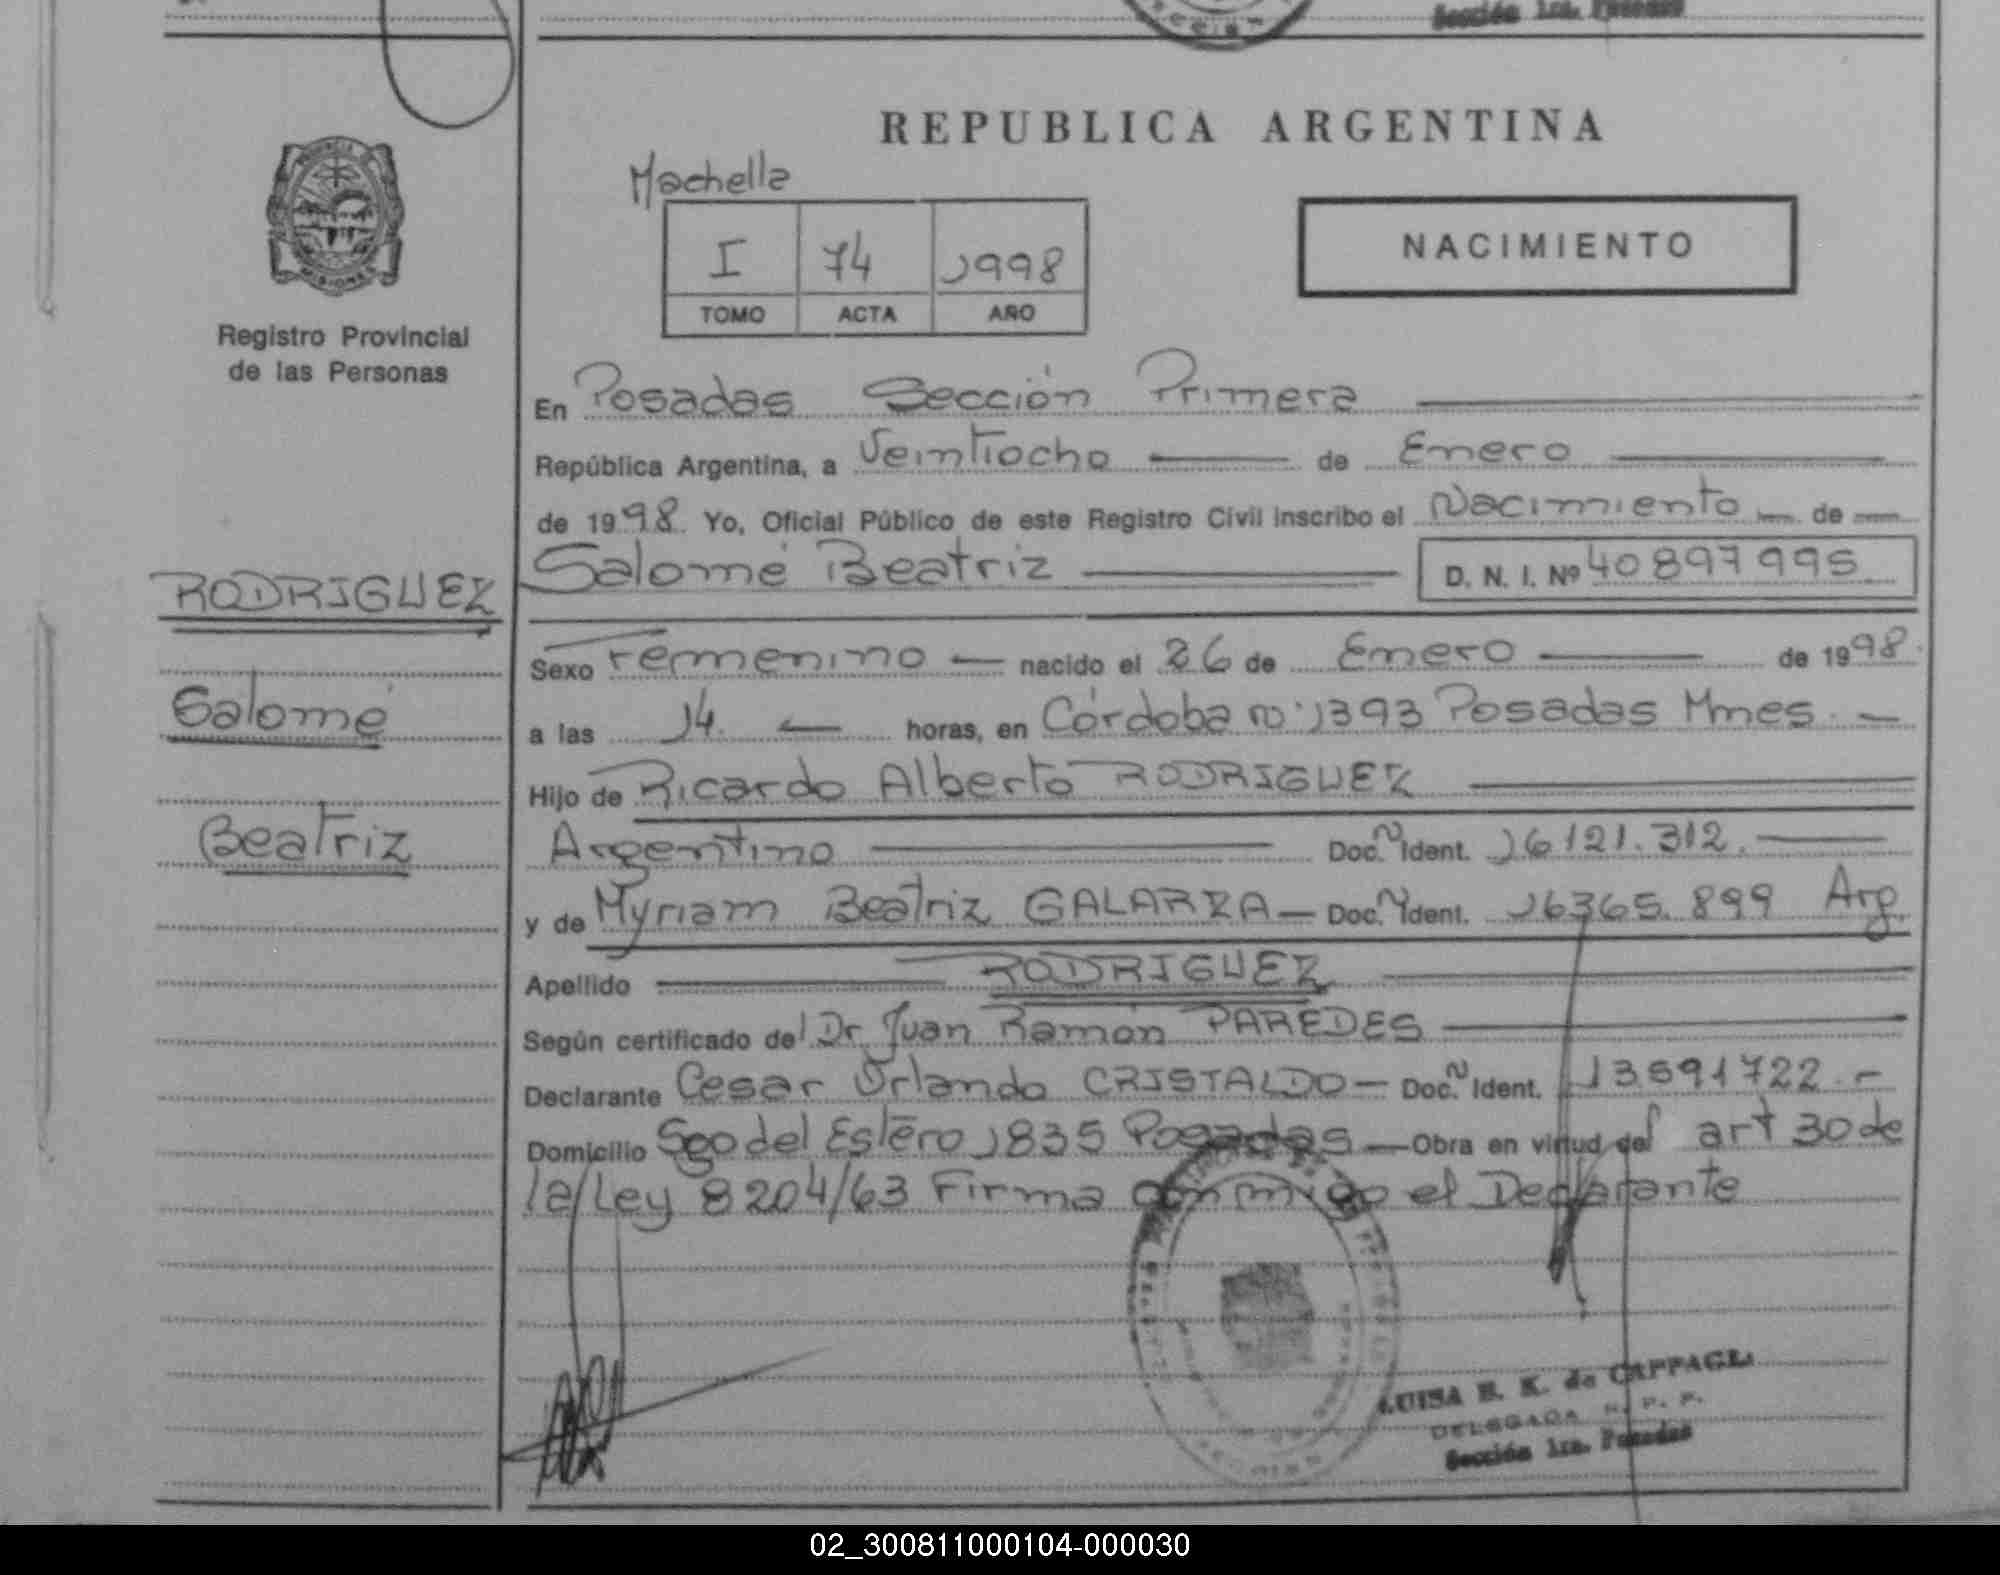 Sección 1ra. Posadas
REPUBLICA ARGENTINA
Machella
I 74 1998
TOMO ACTA AÑO
NACIMIENTO
PROVINCIA DE
MISIONES
Registro Provincial
de las Personas
En Posadas Sección Primera
República Argentina, a Veintiocho de Enero
de 1998. Yo, Oficial Público de este Registro Civil inscribo el Nacimiento de
Salomé Beatriz D. N. I. Nº 40897995
RODRIGUEZ
Salomé
Beatriz
Sexo Femenino nacido el 26 de Enero de 1998.
a las 14. horas, en Córdoba nº 1393 Posadas Mnes.
Hijo de Ricardo Alberto RODRIGUEZ
Argentino Doc. N Ident. 16121.312.
y de Myriam Beatriz GALARZA Doc. N Ident. 16365.899 Arg.
Apellido RODRIGUEZ
Según certificado del Dr. Juan Ramón PAREDES
Declarante Cesar Orlando CRISTALDO Doc. N Ident. 13591722.-
Domicilio Sgo del Estero 1835 Posadas Obra en virtud del art 30 de
la Ley 8204/63 Firma conmigo el Declarante
LUISA B. K. de CAPPAGLI
DELEGADA R. P. P.
Sección 1ra. Posadas
02_300811000104-000030